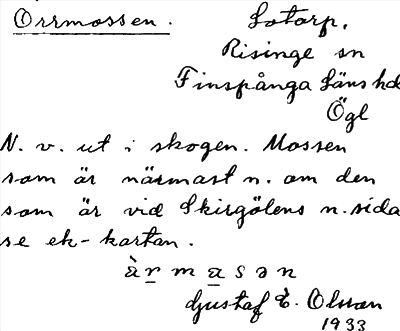 Orrmossen. Lotorp,
Risinge sn
Finspånga läns hd
Ögl
N. v. ut i skogen. Mossen
som är närmast n. om den
som är vid Skirgölens n. sida
se ek-kartan.
àr m a s ə n
Gustaf E. Olsson
1933